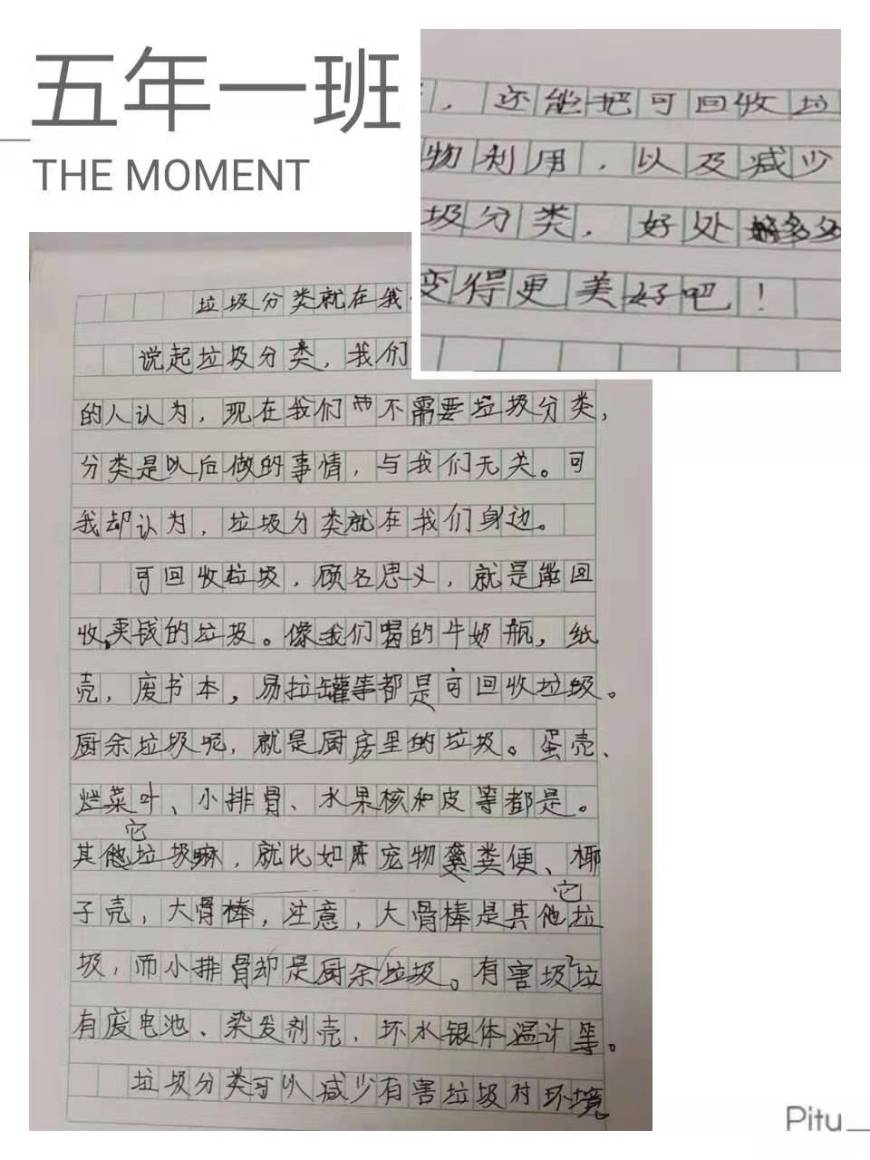 五年一班
THE MOMENT
垃圾分类就在我
说起垃圾分类，我们
的人认为，现在我们不需要垃圾分类，
分类是以后做的事情，与我们无关。可
我却认为，垃圾分类就在我们身边。
可回收垃圾，顾名思义，就是能回
收卖钱的垃圾。像我们喝的牛奶瓶，纸
壳，废书本，易拉罐等都是可回收垃圾。
厨余垃圾呢，就是厨房里的垃圾。蛋壳、
烂菜叶、小排骨、水果核和皮等都是。
其它垃圾嘛，就比如宠物粪便、椰
子壳，大骨棒，注意，大骨棒是其它垃
圾，而小排骨却是厨余垃圾。有害圾垃
有废电池、染发剂壳，坏水银体温计等。
垃圾分类可以减少有害垃圾对环境
，还能把可回收垃
物利用，以及减少
圾分类，好处多多
变得更美好吧！
Pitu